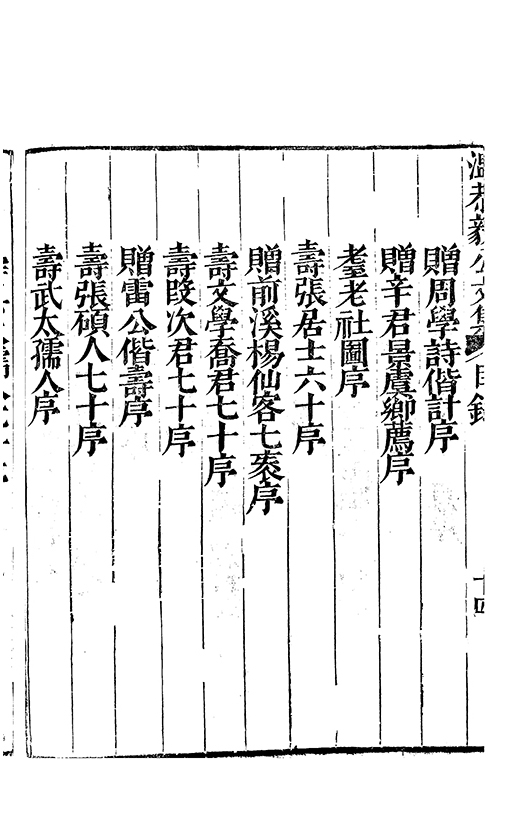 溫恭毅公文集 目錄 十四
贈周學詩偕計序
贈辛君景虞鄉薦序
耋老社圖序
壽張居士六十序
贈前溪楊仙客七袠序
壽文學喬君七十序
壽段次君七十序
贈雷公偕壽序
壽張碩人七十序
壽武太孺人序